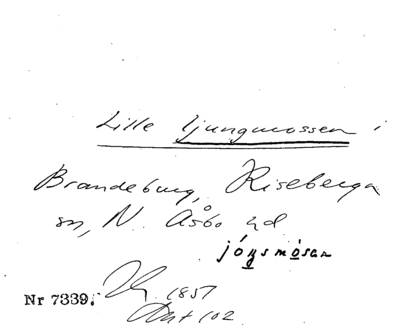 Lille ljungmossen i
Brandeburg, Riseberga
sn, N. Åsbo hd
jóŋsmósan
Nr 7339. 1851
Ant 102